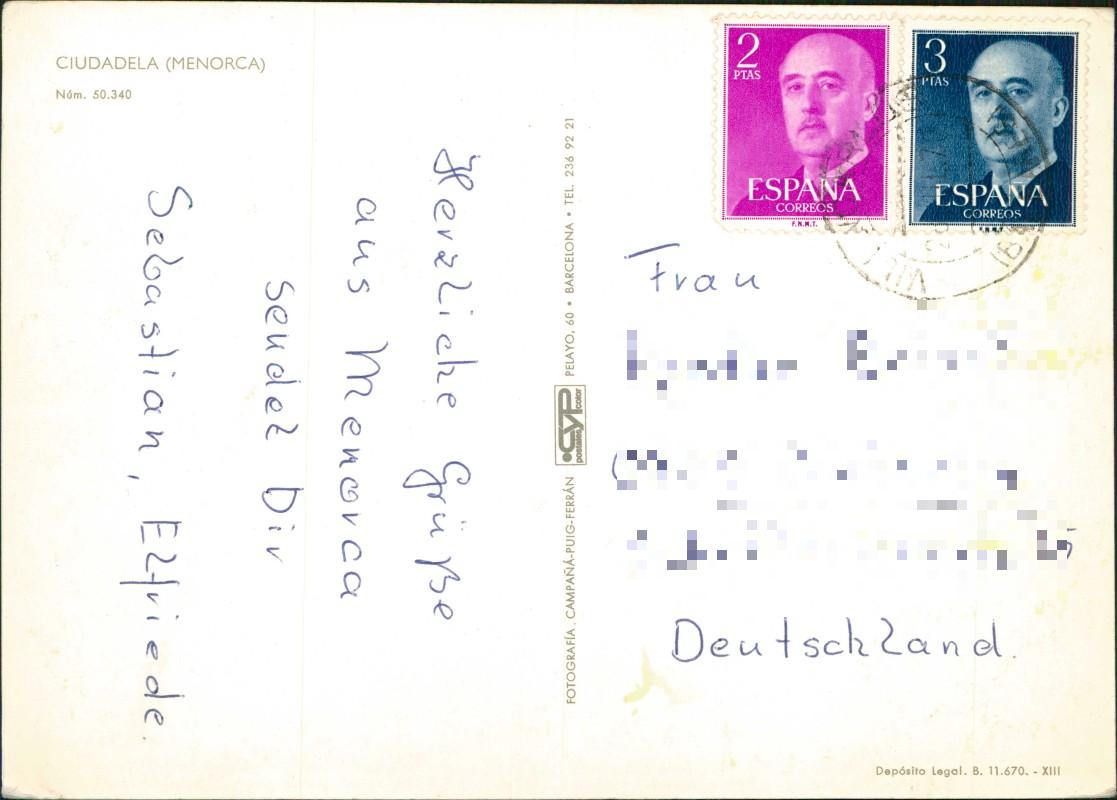 CIUDADELA (MENORCA)
Núm. 50.340
Herzliche Grüße
aus Menorca
sendet Dir
Sebastian, Elfriede.
FOTOGRAFÍA, CAMPAÑÁ-PUIG-FERRÁN
postales CYP color
PELAYO, 60 • BARCELONA • TEL. 236 92 21
2
PTAS
ESPAÑA
CORREOS
F.N.M.T.
3
PTAS
ESPAÑA
CORREOS
Frau
Deutschland.
Depósito Legal. B. 11.670. - XIII